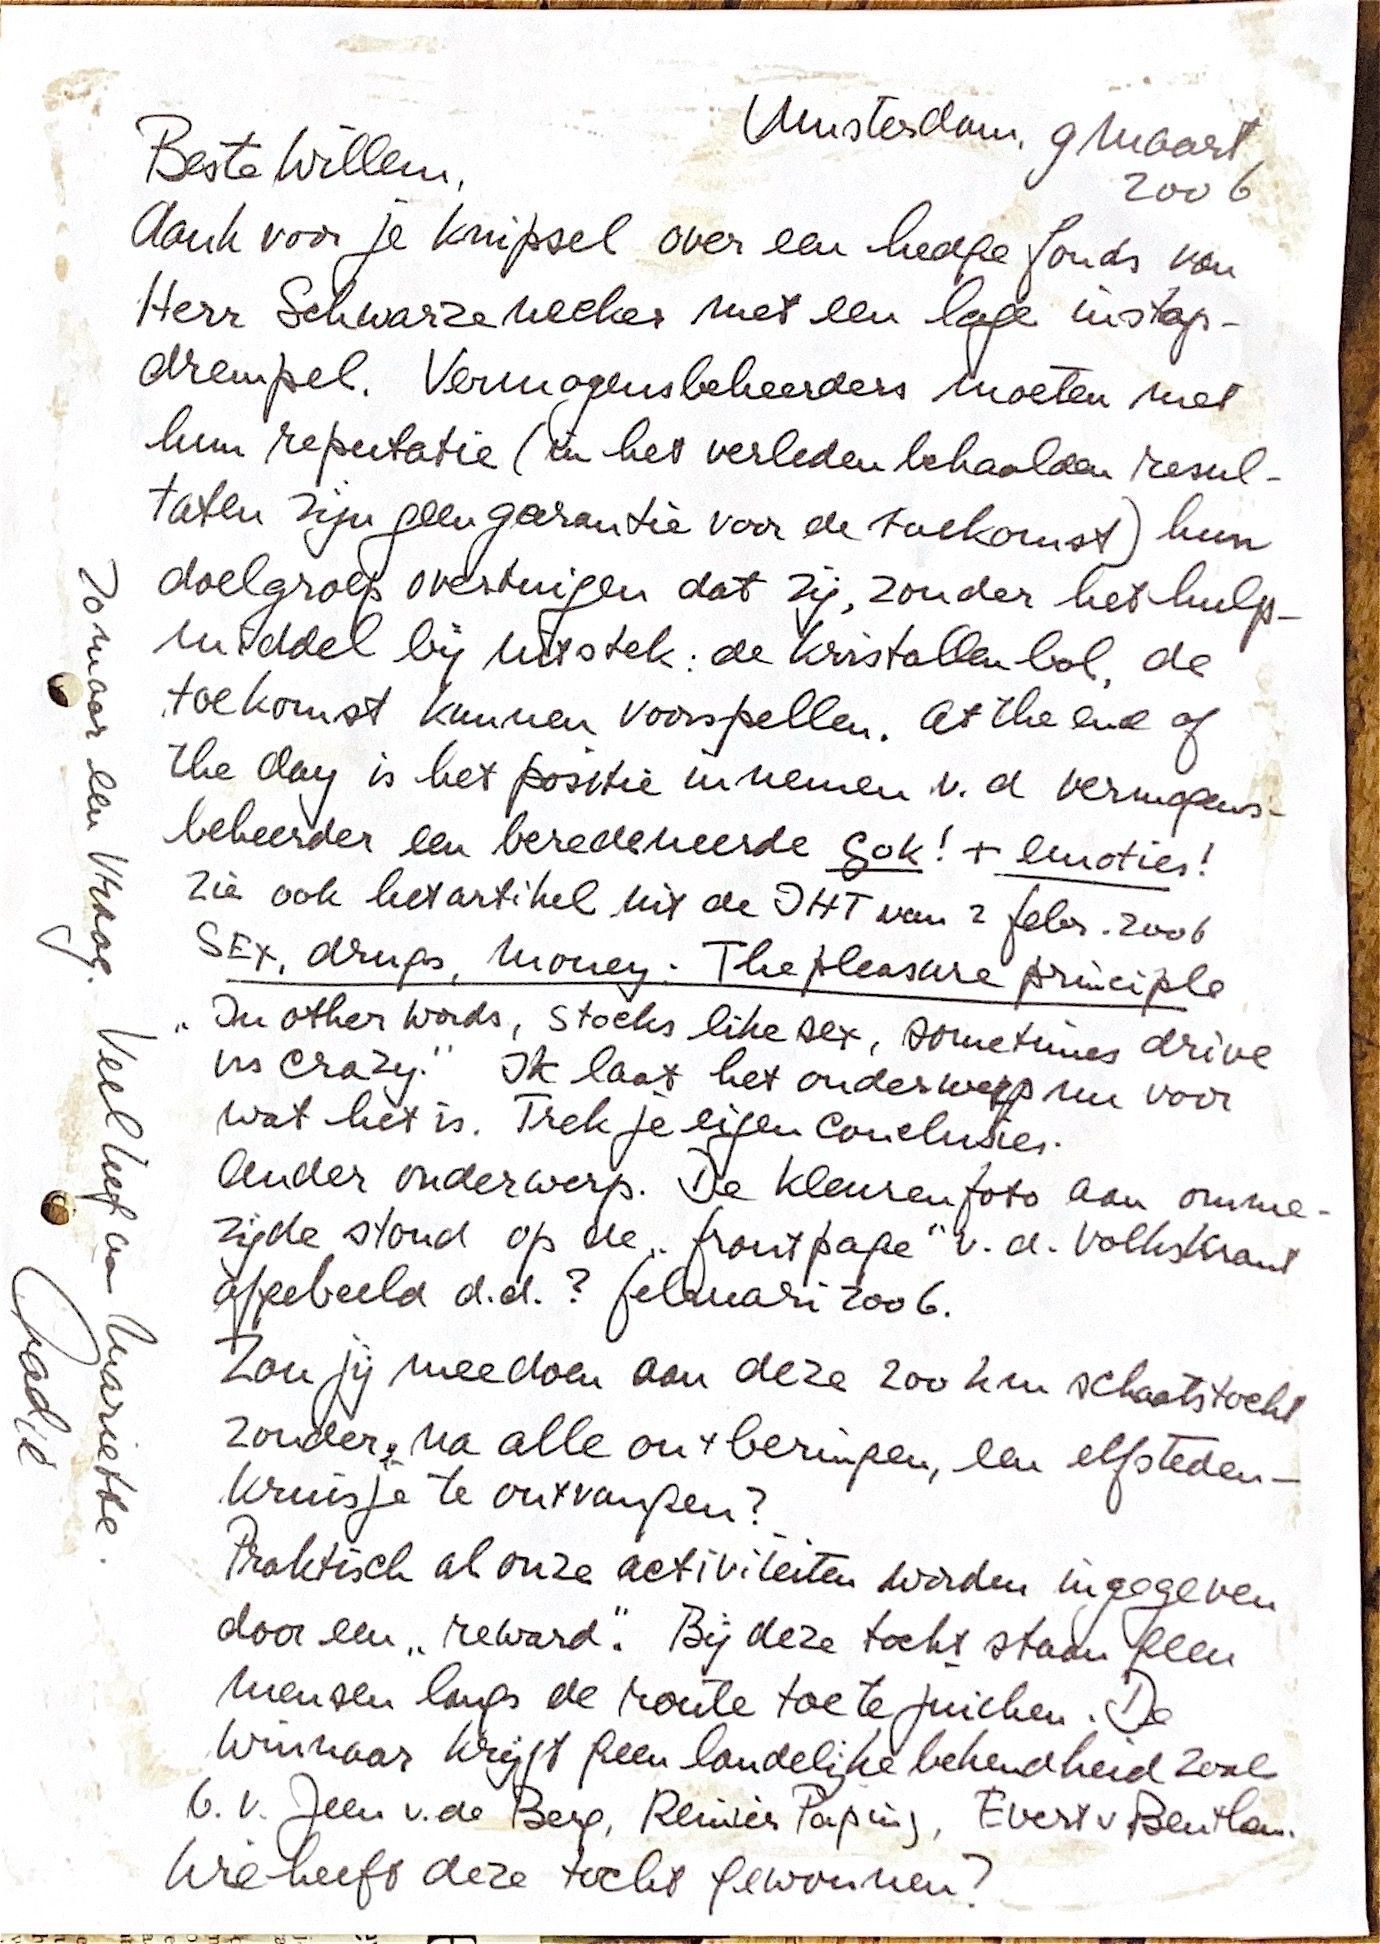 Amsterdam, 9 Maart
2006
Beste Willem,
dank voor je knipsel over een hedge fonds van
Herr Schwarzenecker met een lage instap-
drempel. Vermogensbeheerders moeten met
hun reputatie (in het verleden behaalden resul-
taten zijn geen garantie voor de toekomst) hun
doelgroep overtuigen dat zij, zonder het hulp-
middel bij uitstek: de kristallen bol, de
toekomst kunnen voorspellen. At the end of
the day is het positie innemen v.d vermogens-
beheerder een beredeneerde gok! + emoties!
Zie ook het artikel uit de IHT van 2 febr. 2006
SEx, drugs, money. The pleasure principle
„In other words, stocks like sex, sometimes drive
us crazy." Ik laat het onderwerp nu voor
wat het is. Trek je eigen conclusies.
Ander onderwerp. De kleurenfoto aan omme-
zijde stond op de „frontpage" v.d. Volkskrant
afgebeeld d.d. ? februari 2006.
Zou jij meedoen aan deze 200 km schaatstocht
zonder, na alle ontberingen, een elfsteden-
kruisje te ontvangen?
Praktisch al onze activiteiten worden ingegeven
door een „reward". Bij deze tocht staan geen
mensen langs de route toe te juichen. De
winnaar krijgt geen landelijke bekendheid zoals
b.v. Jeen v.de Berg, Reinier Paping, Evert v Benthem.
Wie heeft deze tocht gewonnen?
Zo maar een vraag. Veel liefs van Mariette.